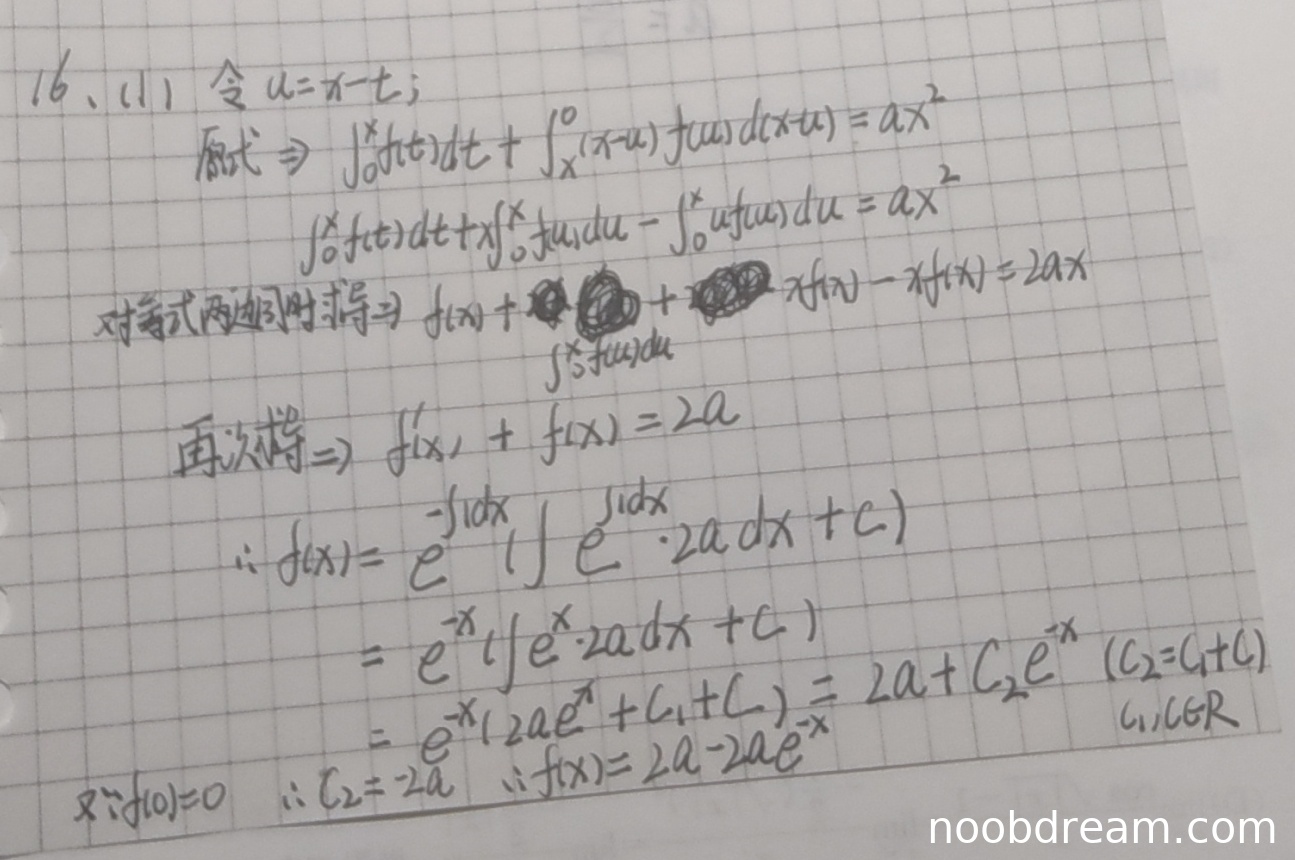 16、(1) 令 u=x-t;
原式 ⇒ ∫₀ˣf(t)dt + ∫ₓ⁰(x-u)f(u)d(x-u) = ax²
∫₀ˣf(t)dt+x∫₀ˣf(u)du - ∫₀ˣuf(u)du = ax²
对等式两边同时求导⇒ f(x) + + xf(x) - xf(x) = 2ax
∫₀ˣf(u)du
再次求导⇒ f'(x) + f(x) = 2a
∴ f(x) = e^{-∫1dx} (∫ e^{∫1dx}·2a dx + C)
= e^{-x} (∫e^x·2a dx + C)
= e^{-x}(2ae^x + C₁ + C) = 2a + C₂e^{-x} (C₂=C₁+C)
C₁,C∈R
又∵f(0)=0 ∴ C₂=-2a ∴f(x)= 2a-2ae^{-x}
noobdream.com